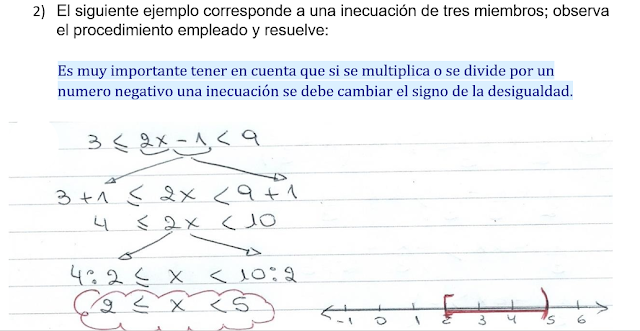 2) El siguiente ejemplo corresponde a una inecuación de tres miembros; observa
el procedimiento empleado y resuelve:
Es muy importante tener en cuenta que si se multiplica o se divide por un
numero negativo una inecuación se debe cambiar el signo de la desigualdad.
3 ≤ 2x - 1 < 9
3 + 1 ≤ 2x < 9 + 1
4 ≤ 2x < 10
4:2 ≤ x < 10:2
2 ≤ x < 5
-1 0 1 2 3 4 5 6